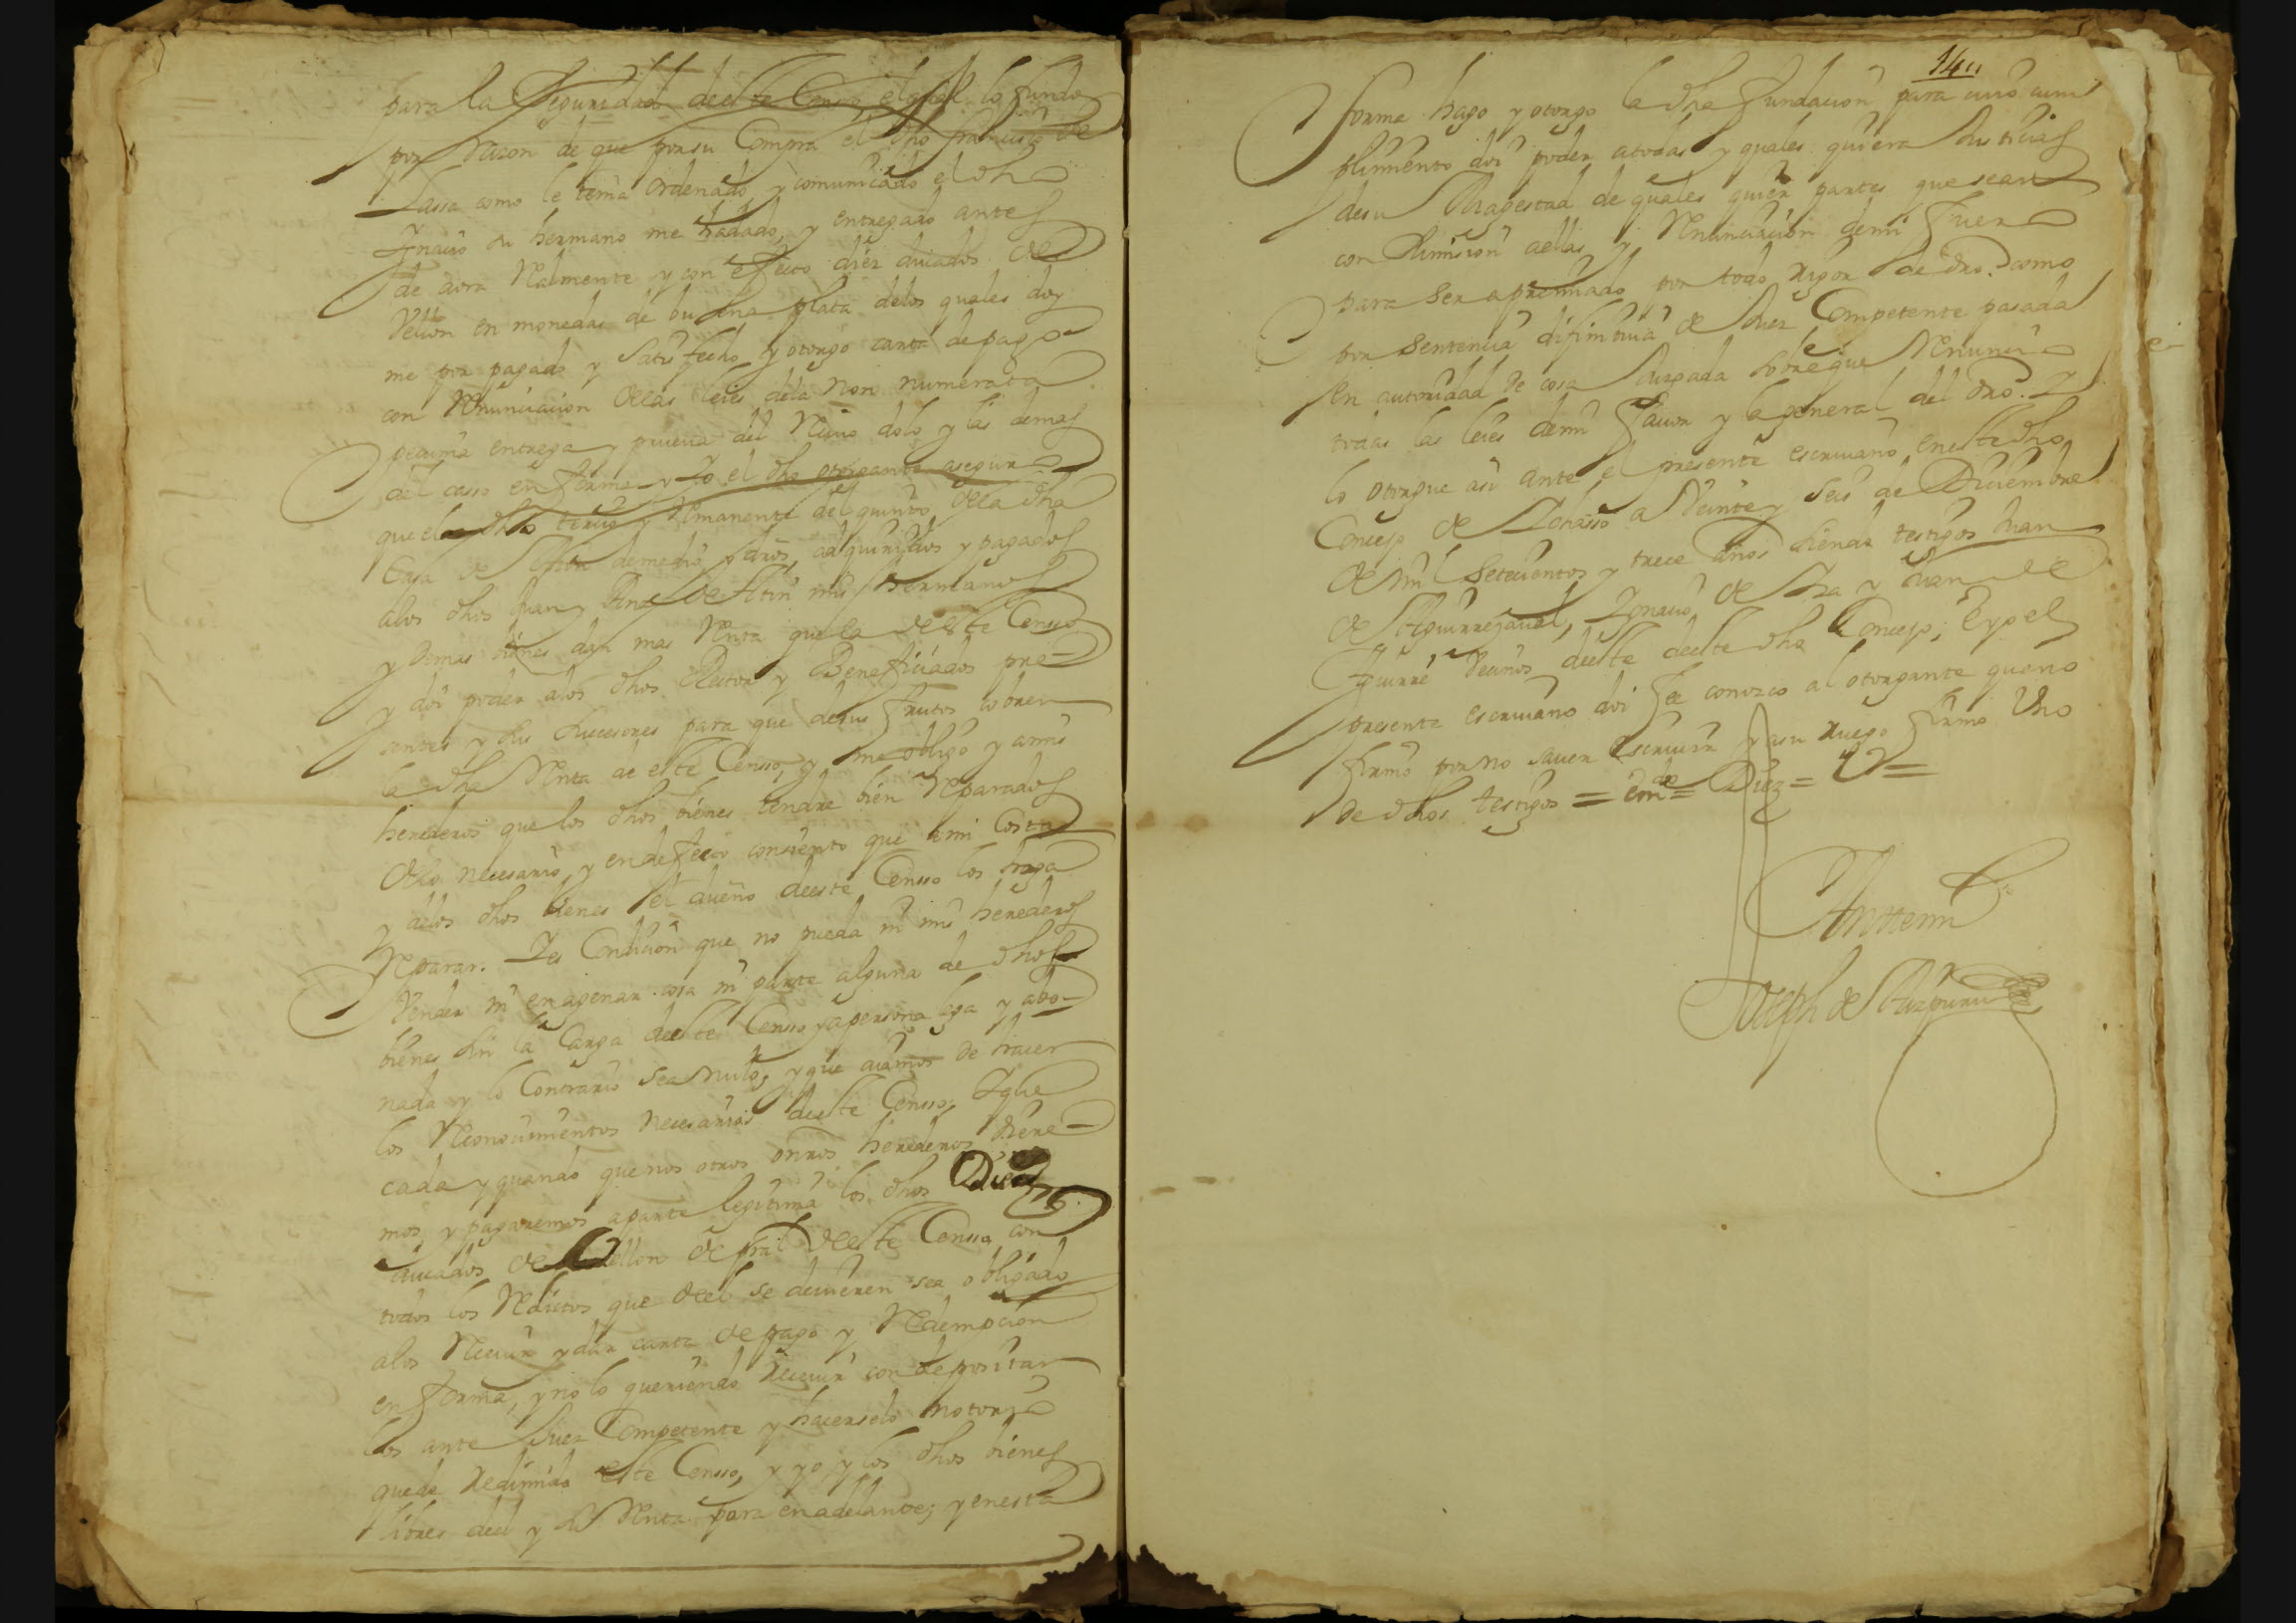 para la seguridad deeste Censo el qual lo fundo
por razon de que por su Compra el dho francisco de
Lassa como le tenia ordenado, y comunicado el dho
Ignacio su hermano me ha dado, y entregado antes
de aora realmente y con efecto diez ducados de
Vellon en monedas de buena plata delos quales doy
me por pagado y satisfecho, y otorgo carta de pago
con renunciacion delas leies dela non numerata
pecunia entrega y prueva del recivo dolo y las demas
del casso en forma y Yo el dho otorgante aseguro
que el dho tercio y remanente del quinto dela dha
Casa de demedio y dros, adquiridos y pagados
alos dhos Juan y Ana de mis hermanos
y demas bienes dan mas renta que la de este Censo
y doi poder alos dhos Rector y Beneficiados pre-
sentes y sus sucesores para que de sus frutos cobren
la dha renta de este Censo, y me obligo y amis
herederos que los dhos bienes tendre bien reparados
delo necesario, y en defecto consiento que ami costa
y delos dhos bienes el dueño deeste Censso los haga
reparar. Y es Condicion que no pueda ni mis herederos
Vender ni enagenar cosa ni parte alguna de dhos
bienes sin la carga deeste Censo y apersona lega y abo-
nada y lo Contrario sea nulo, y que aiamos de hacer
los reconocimientos necesarios deeste Censso, Y que
cada y quando que nos otros o nros herederos diere-
mos, y pagaremos aparte legitima los dhos Diez
ducados de Vellon de pral deeste Censso, con
todos los reditos que del se devieren sea obligado
alos recivir y dar carta de pago y redempcion
en forma, y no lo queriendo recevir con depositar
los ante Juez Competente y hacerselo notorio
quede redimido este Censso, y yo y los dhos bienes
libres del y su renta para en adelante; y en esta
14
forma hago y otorgo la dha fundacion para cuio cum
plimiento doi poder atodas y quales quiera Justicias
desu Magestad de quales quier partes que sean
con sumision aellas y renunciacion demi fuero
para ser apremiado por todo rigor de dro. como
por sentencia difinitiva de Juez Competente pasada
en autoridad de cosa Juzgada sobre que renuncio
todas las leies demi favor y la general del dro. Y
lo otorgue asi ante el presente escrivano, en este dho
Concejo de a Veinte y seis de Diciembre
de mil Setecientos y trece años siendo testigos Juan
de Aguirrezaval, Ignacio de y Juan de
Aguirre Vecinos deeste deeste dho Concejo; E yo el
presente escrivano doi fee conozco al otorgante que no
firmó por no saver escrivir y asu ruego firmo Uno
de dhos testigos = emdo = Diez = V =
Antemi
Joseph de